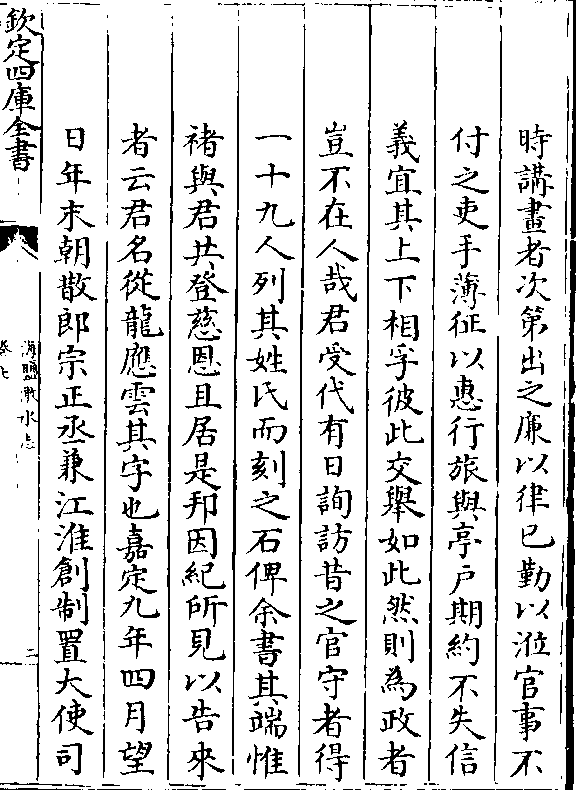 時講畫者次第出之廉以律已勤以涖官事不
付之吏手薄征以惠行旅與亭户期約不失信
義宜其上下相孚彼此交舉如此然則為政者
豈不在人哉君受代有日詢訪昔之官守者得
一十九人列其姓氏而刻之石俾余書其端惟
禇與君共登慈恩且居是邦因紀所見以告來
者云君名從龍應雲其字也嘉定九年四月望
日年末朝散郎宗正丞兼江淮創制置大使司
欽定四庫全書
海鹽澉水志
卷七
三